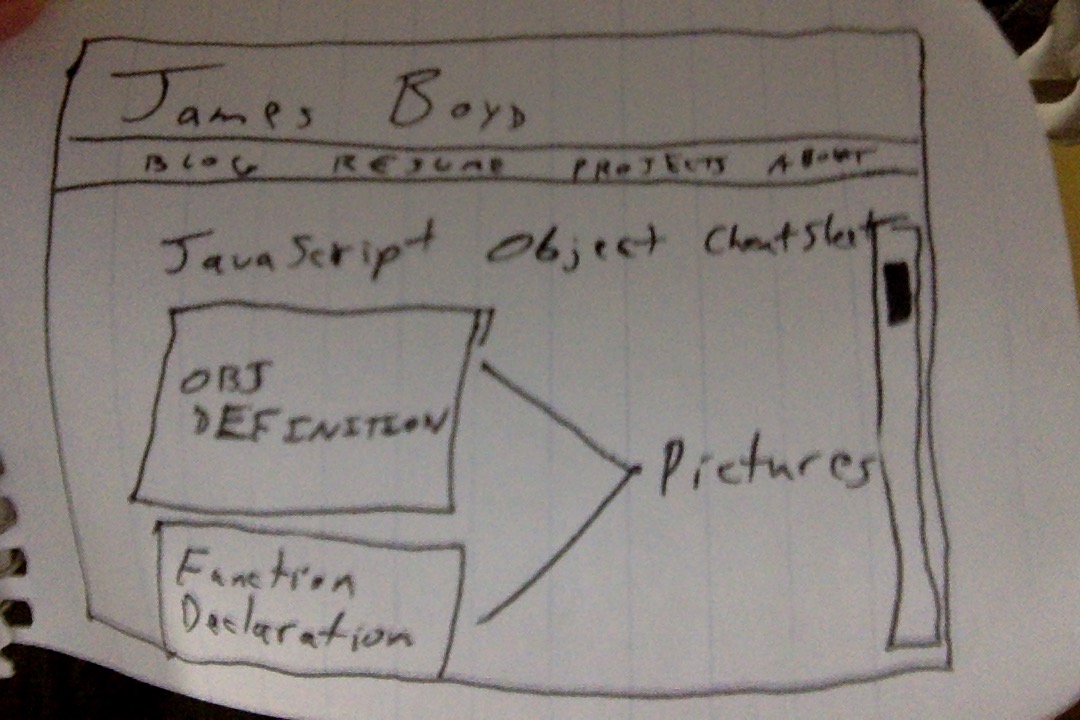 James Boyd
BLOG RESUME PROJECTS ABOUT
JavaScript Object CheatSheet
OBJ
DEFINITION
Pictures
Function
Declaration